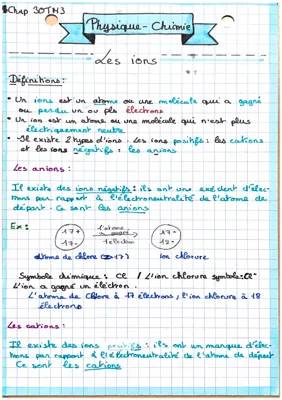 Chap 3OTM3
Physique-Chimie
Les ions
Définitions:
• Un ions est un atome ou une molécule qui a gagné
ou perdu un ou pls électrons
• Un ion est un atome ou une molécule qui n'est plus
électriquement neutre
• Il existe 2 types d'ions. Les ions positifs: les cations
et les ions négatifs: les anions
Les anions:
Il existe des ions négatifs: ils ont une excédent d'élec-
trons par rapport à l'électroneutralité de l'atome de
départ. Ce sont les anions
Ex:
17+
17-
l'atome
a gagné
1 électron
17+
18-
atome de chlore (Z=17)
ion chlorure
Symbole chimique: Cl / L'ion chlorure symbole: Cl⁻
L'ion a gagné un électron.
L'atome de Chlore à 17 électrons, l'ion chlorure à 18
électrons
Les cations:
Il existe des ions positifs: ils ont un manque d'élec-
trons par rapport à l'électroneutralité de l'atome de départ
Ce sont les cations